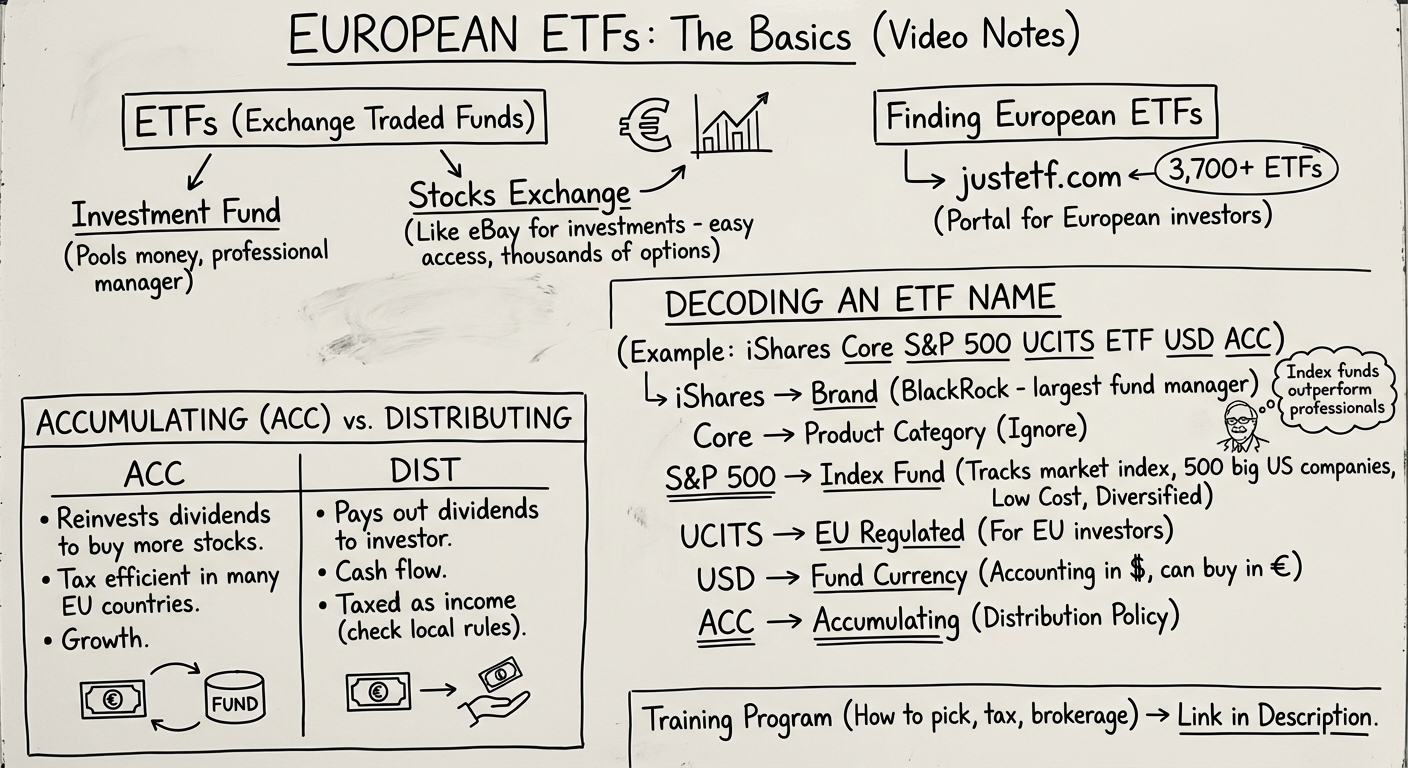 EUROPEAN ETFs: The Basics (Video Notes)
ETFs (Exchange Traded Funds)
Investment Fund
(Pools money, professional
manager)
Stocks Exchange
(Like eBay for investments - easy
access, thousands of options)
€
Finding European ETFs
justetf.com ← 3,700+ ETFs
(Portal for European investors)
DECODING AN ETF NAME
(Example: iShares Core S&P 500 UCITS ETF USD ACC)
iShares → Brand (BlackRock - largest fund manager)
Index funds
outperform
professionals
Core → Product Category (Ignore)
S&P 500 → Index Fund (Tracks market index, 500 big US companies,
Low Cost, Diversified)
UCITS → EU Regulated (For EU investors)
USD → Fund Currency (Accounting in $, can buy in €)
ACC → Accumulating (Distribution Policy)
ACCUMULATING (ACC) vs. DISTRIBUTING
ACC
• Reinvests dividends
to buy more stocks.
• Tax efficient in many
EU countries.
• Growth.
€
FUND
DIST
• Pays out dividends
to investor.
• Cash flow.
• Taxed as income
(check local rules).
€
Training Program (How to pick, tax, brokerage) → Link in Description.